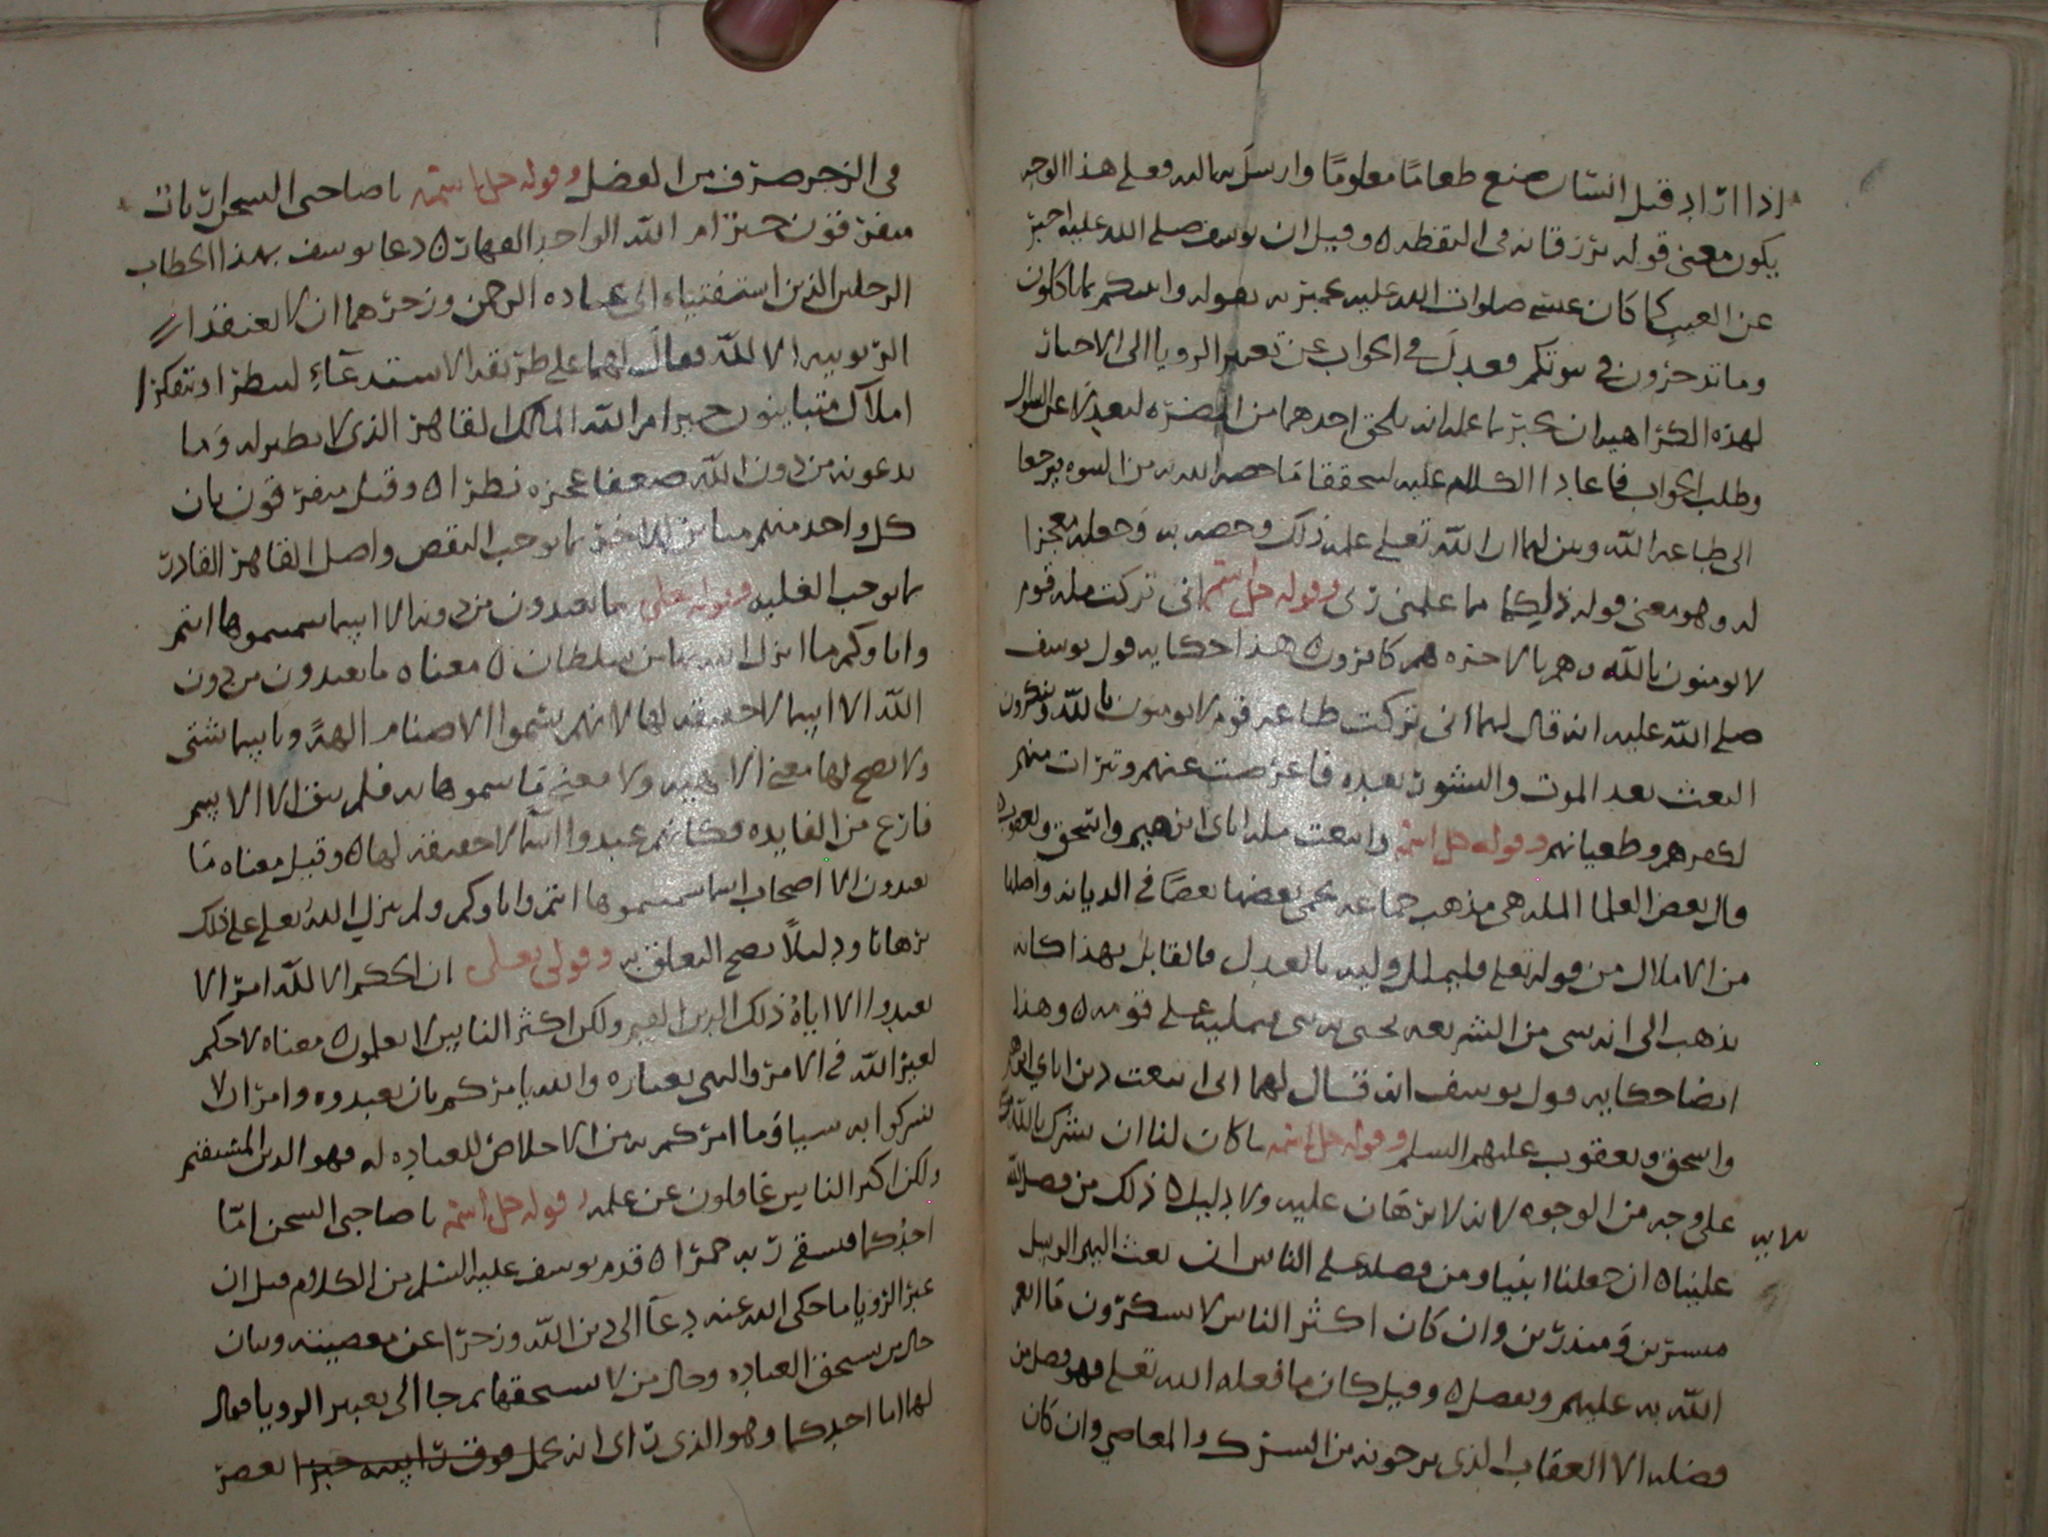 اذا اراد قتل انسان صنع طعاما معلوما وارسل به اليه فعلى هذا الوجه
يكون معنى قوله ترزقانه في اليقظه وقيل ان يوسف صلى الله عليه اخبر
عن الغيب كما كان عيسى صلوات الله عليه يخبر به بقوله وانبئكم بما تاكلون
وما تدخرون في بيوتكم فعدل في الجواب عن تعبير الرويا الى الاخبار
لهذه الكراهيه ان يخبر بما علم انه يلحق احدهما من المضره ليعدلا عن السوال
وطلب الجواب فاعادا الكلام عليه ليتحققا ما خصه الله به من النبوه يرجعا
الى طاعه الله وبين لهما ان الله تعلى علمه ذلك وخصه به وجعله معجزا
له وهو معنى قوله ذلكما مما علمنى ربى وقوله جل اسمه انى تركت مله قوم
لا يومنون بالله وهم بالاخره هم كافرون هذا حكايه قول يوسف
صلى الله عليه انه قال لهما انى تركت طاعه قوم لا يومنون بالله وينكرون
البعث بعد الموت والنشور بعده فاعرضت عنهم وتبرات منهم
لكفرهم وطغيانهم وقوله جل اسمه واتبعت مله اباى ابرهيم واسحق ويعقوب
قال بعض العلما المله هى مذهب جماعه يحمى بعضها بعضا في الديانه واصلها
من الاملال من قوله تعلى فليملل وليه بالعدل فالقايل بهذا كانه
يذهب الى انه شى من الشريعه يحيى به نبى يمليه على قومه وهذا
ايضا حكايه قول يوسف انه قال لهما انى اتبعت دين اباي ابرهيم
واسحق ويعقوب عليهم السلم وقوله جل اسمه ما كان لنا ان نشرك بالله من شى
على وجه من الوجوه لانه لا برهان عليه ولا دليل ذلك من فضل الله
علينا ان جعلنا انبيا ومن فضله على الناس ان بعث اليهم الرسل
مبشرين ومنذرين وان كان اكثر الناس لا يشكرون ما انعم
الله به عليهم وتفضل وقيل كان ما فعله الله تعلى فهو فضل من
فضله الا العقاب الذى يرجونه من الشرك والمعاصي وان كان
في الزجر ضرف من الفضل وقوله جل اسمه يا صاحبى السجن ارباب
متفرقون خير ام الله الواحد القهار دعا يوسف بهذا الخطاب
الرجلين الذين استفتياه الى عباده الرحمن وزجرهما ان لا يعتقدا
الربوبيه الا لله فقال لهما على طريقه الاستدعاء لينظرا ويتفكرا
املاك متباينون خير ام الله المالك القاهر الذى لا نظير له وما
يدعونه من دون الله ضعفا عجزه نظرا وقيل متفرقون بان
كل واحد منهم مباين للاخر بما يوجب النقص واصل القاهر القادر
بما يوجب الغلبه وقوله تعلى ما تعبدون من دونه الا اسما سميتموها انتم
واباوكم ما انزل الله بها من سلطان معناه ما تعبدون من دون
الله الا اسما لا حقيقه لها لانهم سموا الاصنام الهة وباسما شتى
ولا يصح لها معنى الالهيه ولا معنى ما سموها به فلم يبق الا الاسم
فارغ من الفايده فكانهم عبدوا اسما لا حقيقه لها وقيل معناه ما
تعبدون الا اصحاب اسما سميتموها انتم واباوكم ولم ينزل الله تعلى على ذلك
برهانا ودليلا يصح التعلق به وقولى تعلى ان الحكم الا لله امر الا
تعبدوا الا اياه ذلك الدين القيم ولكن اكثر الناس لا يعلمون معناه لا حكم
لغير الله في الامر والنهى بعباره والله يامركم بان تعبدوه وامر ان لا
تشركوا به شيا وما امركم به من الاخلاص للعباده له فهو الدين المستقيم
ولكن اكثر الناس غافلون عن علمه وقوله جل اسمه يا صاحبى السجن اما
احدكما فيسقى ربه خمرا قدم يوسف عليه السلم من الكلام قبل ان
عبر الرويا ما حكى الله عنه دعا الى دين الله وزجرا عن معصيته وبيان
حال من يستحق العباده وحال من لا يستحقها ثم جا الى تعبير الرويا فقال
لهما اما احدكما وهو الذى راى انه يحمل فوق راسه خبزا يعصر